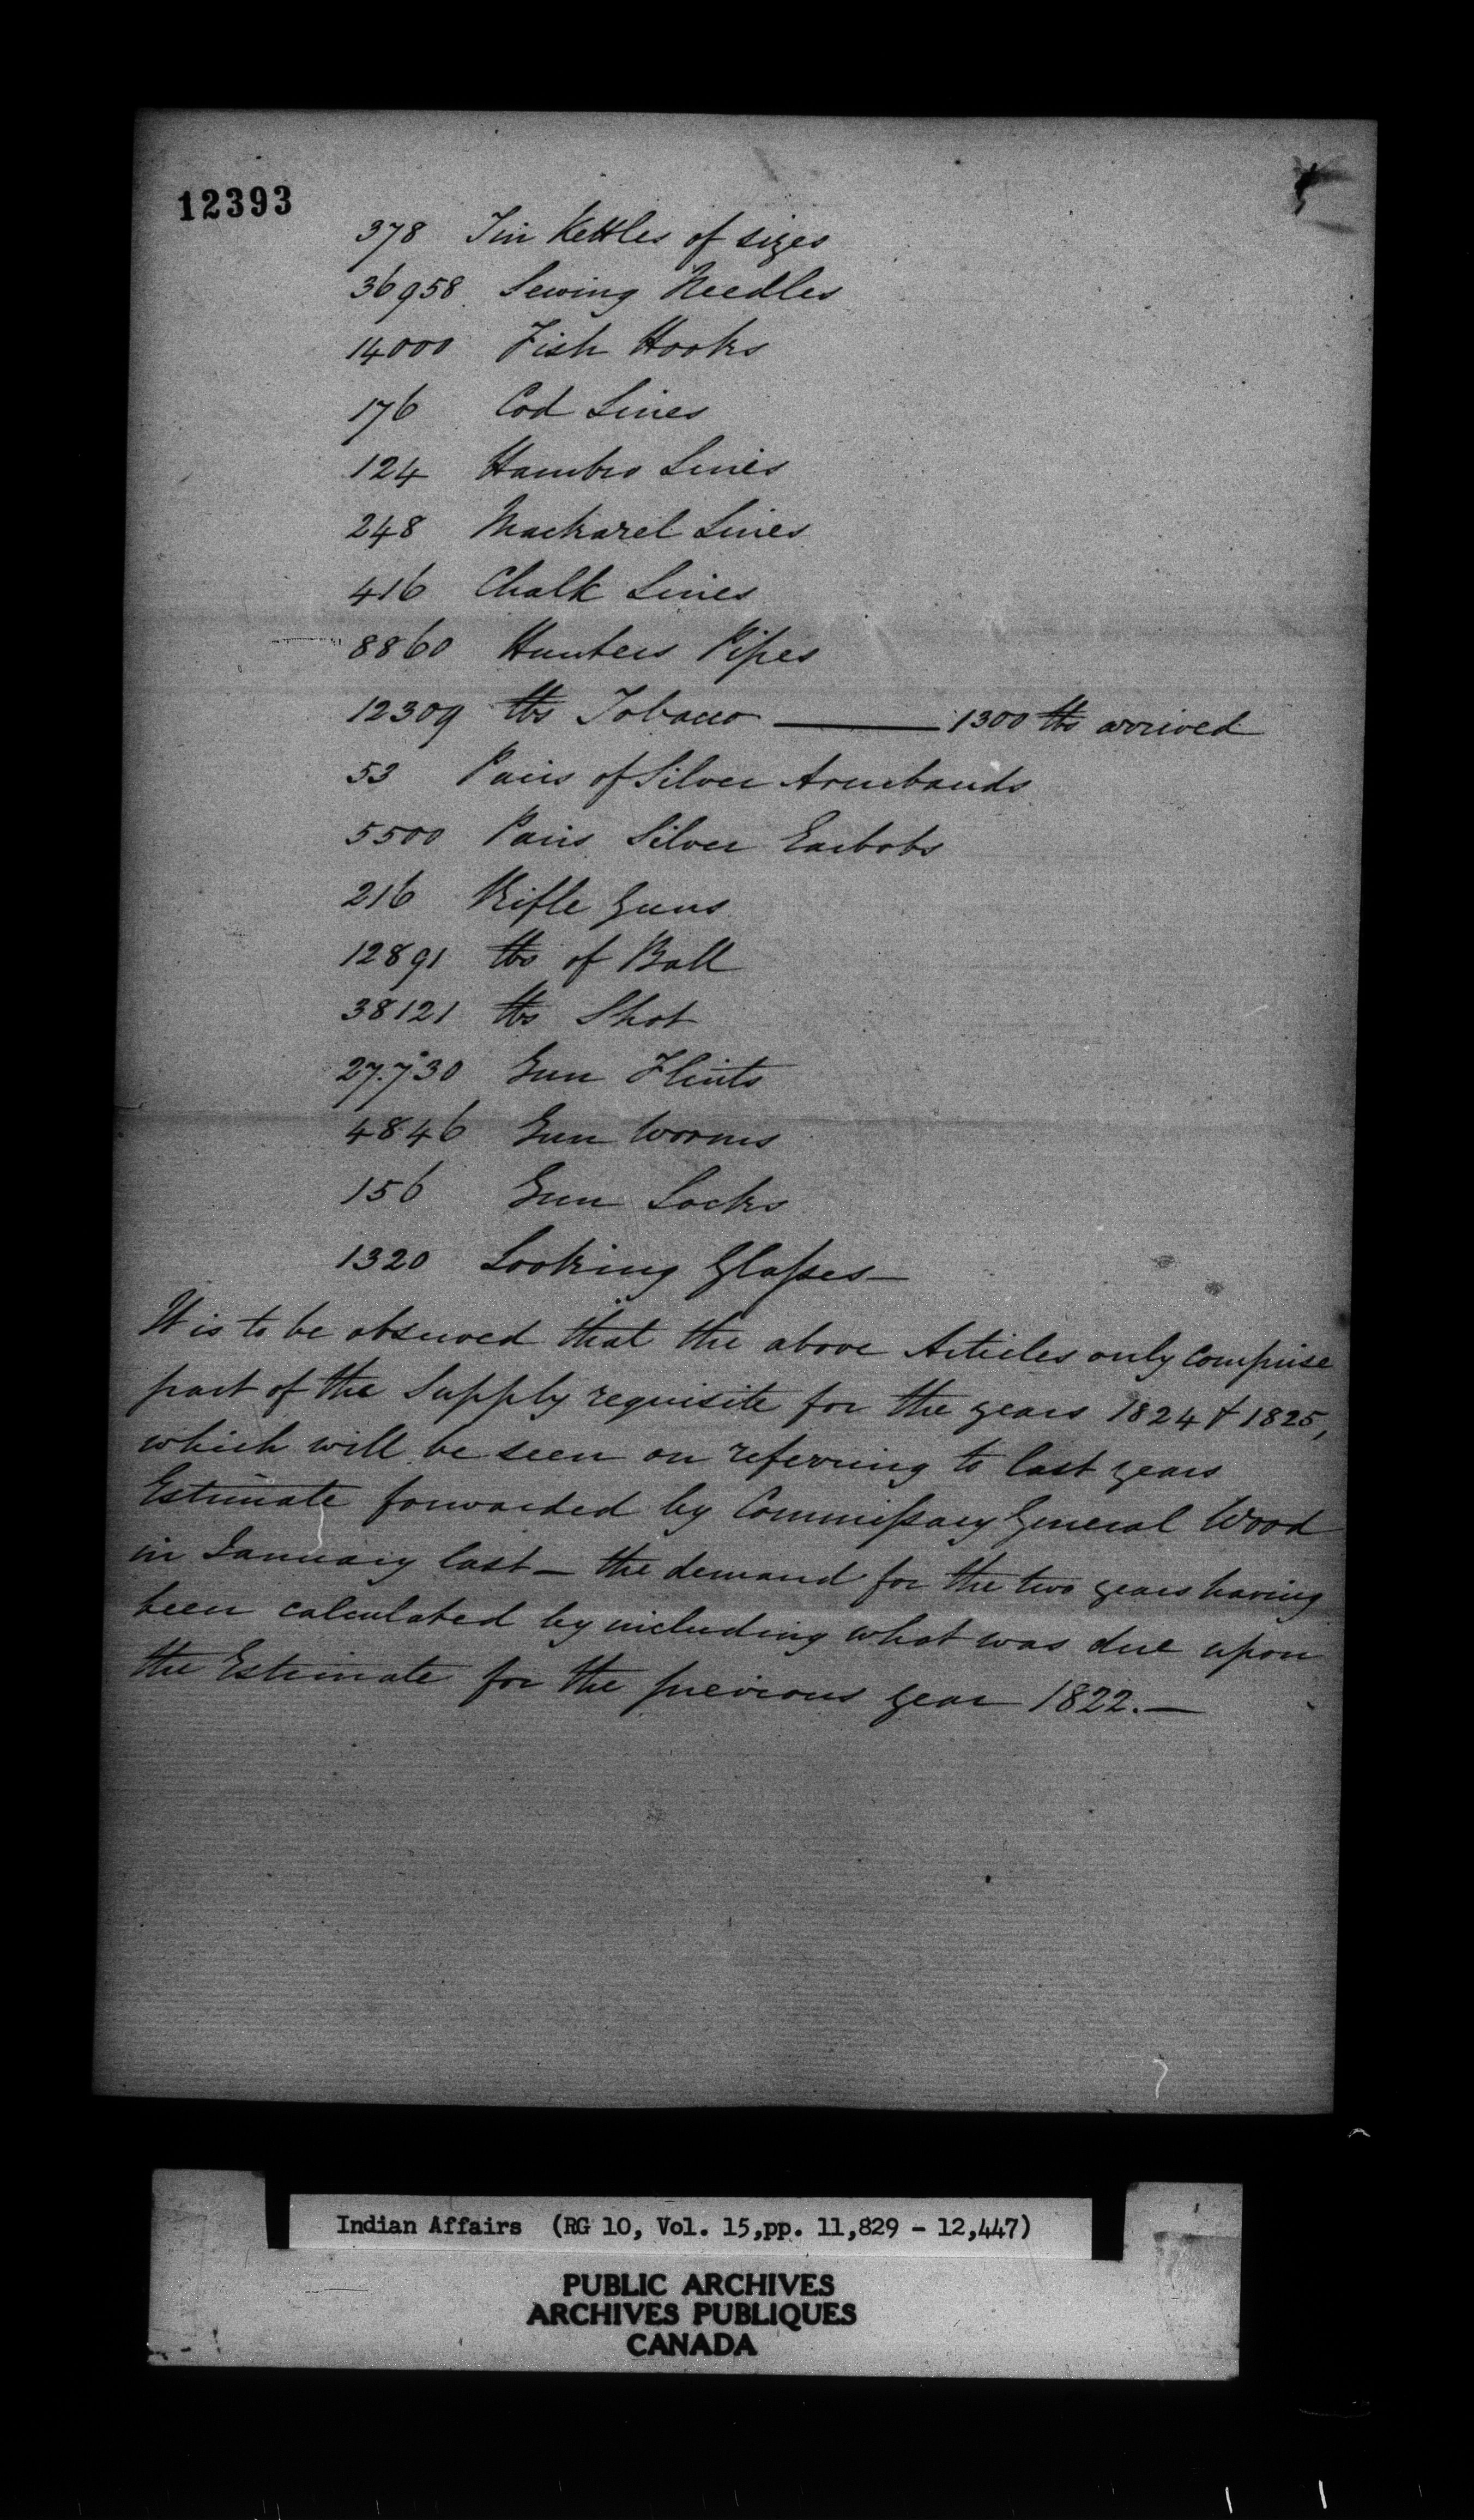 12393
378 Tin Kettles of sizes
36958 Sewing Needles
14000 Fish Hooks
176 Cod Lines
124 Hambro Lines
248 Mackarel Lines
416 Chalk Lines
8860 Hunters Pipes
12309 lbs Tobacco — 1300 lbs arrived
53 Pairs of Silver Armbands
5500 Pairs Silver Earbobs
216 Rifle Guns
12891 lbs of Ball
38121 lbs Shot
27.730 Gun Flints
4846 Gun Worms
156 Gun Locks
1320 Looking Glaſses—
It is to be observed that the above Articles only comprise
part of the Supply requisite for the years 1824 & 1825,
which will be seen on referring to last years
Estimate forwarded by Commiſsary General Wood
in January last — the demand for the two years having
been calculated by including what was due upon
the Estimate for the previous year 1822.—
Indian Affairs (RG 10, Vol. 15, pp. 11,829 - 12,447)
PUBLIC ARCHIVES
ARCHIVES PUBLIQUES
CANADA